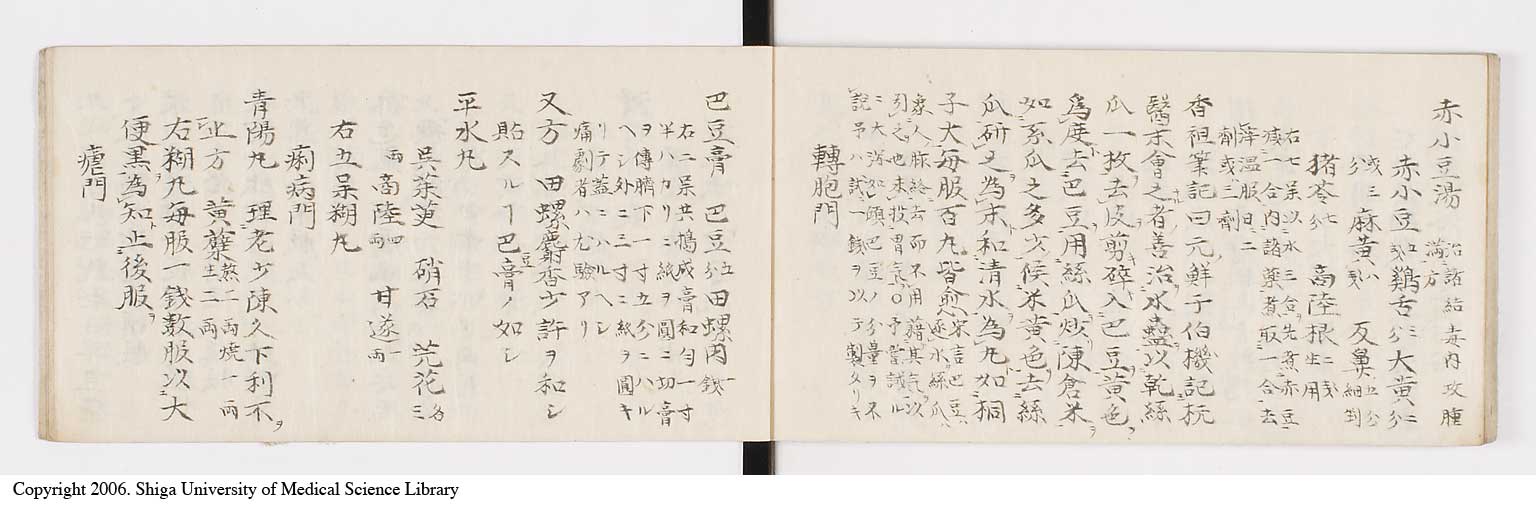 赤小豆湯 治諸結毒内攻腫
満方
赤小豆 鷄舌 大黄
或三分 麻黄 反鼻 細剉
猪苓 七分 商陸根 生用
右七味以水三合先煮赤豆
減一合内諸藥煮取一合去
滓温服日二
劑或三劑
香祖筆記曰元鮮于伯機記杭
醫宋會之者善治水蠱以乾絲
瓜一枚去皮剪碎入巴豆黄色
爲度去巴豆用絲瓜炒陳倉米
如糸瓜之多少候米黄色去絲
瓜研之為末和清水為丸如桐
子大毎服百丸皆愈 宋言巴豆
逐水絲瓜
象人脉絡去而不用藉其氣以
引之也米投胃氣〇予嘗試ル
ニ大済如頭巴豆ノ分量ヲ不
説予ハ試一銭ヲ以テ製タリキ
轉胞門
巴豆膏 巴豆 五分 田螺肉 一銭
右二味共搗成膏和匀一寸
半ハカリニ紙ヲ圓ニ切膏
ヲ傳臍下一寸五分ニハル
ヘシ外ニ三寸ニ紙ヲ圓キ
リテ蓋ニハルヘシ
痛劇者ハ尤験アリ
又方 田螺麝香少許ヲ和シ
貼スルヿ巴豆膏ノ如シ
平水丸
呉茱萸 硝石 芫花 各三
両 商陸 四両 甘遂 一両
右五味糊丸
痢病門
青陽丸 理老少陳久下利不
止方 黄蘗 蒸二両焼一両
生二両
右糊丸毎服一銭数服以大
便黒為知止後服
瘧門